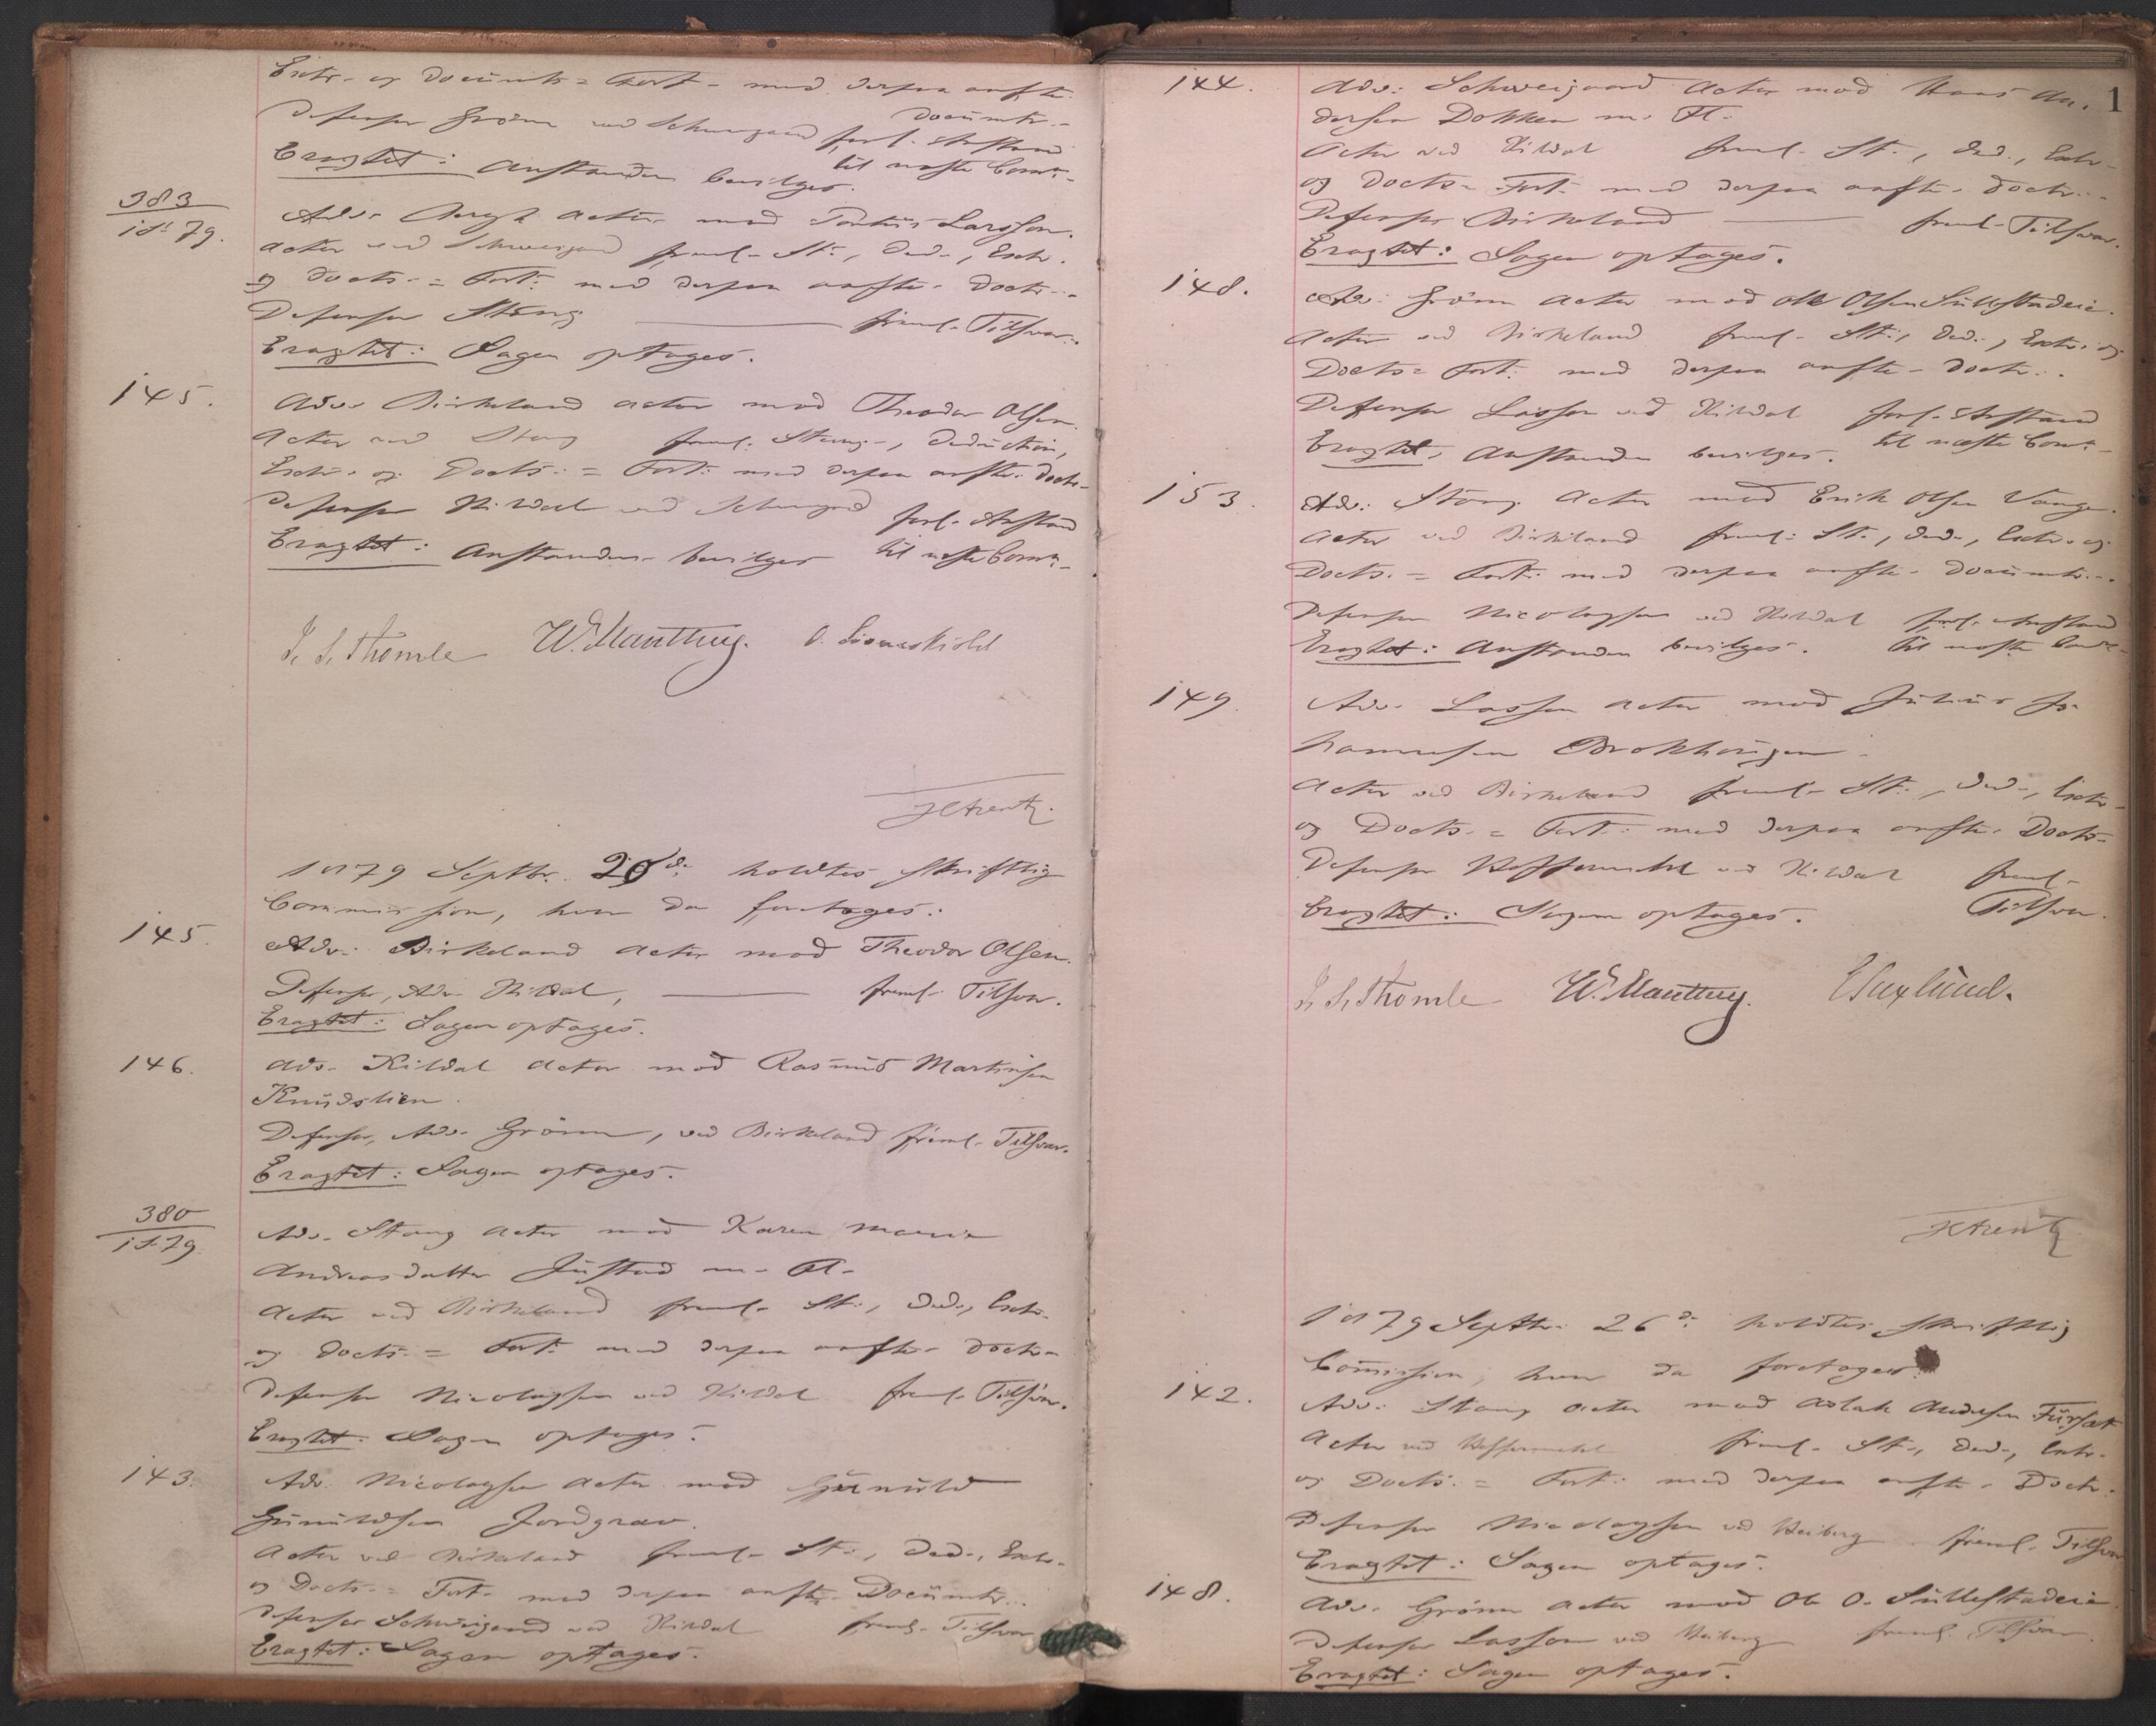 Extr. og Documts = Fort. med derpaa anførte
Documtr.
Defensor Grönn ved Schweigaard forl. Anstand
til næste Comn.
Eragtet: Anstanden bevilges.
383
1879.
Adv. Bergh Actor mod Pontus Larsson.
Actor ved Schweigaard freml. St., Ded., Extr.
og Docts. = Fort. med derpaa anførte Doctr.
Defensor Stang freml. Tilsvar.
Eragtet: Sagen optages.
145.
Adv. Birkeland Actor mod Theodor Olsen.
Actor ved Stang freml. Stevng., Deduction,
Extr. og Docts. = Fort. med derpaa anførte Doctr.
Defensor Kildal ved Schweigaard forl. Anstand
Eragtet: Anstanden bevilges til næste Comn.
J. S. Thomle W. Manthey. O. Lövenskiold
H Arentz.
1879 Septbr. 20de holdtes skriftlig
Commission, hvor da foretages:
145.
Adv. Birkeland Actor mod Theodor Olsen.
Defensor, Adv. Kildal, freml. Tilsvar.
Eragtet: Sagen optages.
146.
Adv. Kildal Actor mod Rasmus Martinsen
Knudslien.
Defensor, Adv. Grönn, ved Birkeland freml. Tilsvar.
Eragtet: Sagen optages.
380
1879.
Adv. Stang Actor mod Karen Marie
Andreasdatter Justad m. Fl.
Actor ved Birkeland freml. St., Ded., Extr.
og Docts. = Fort. med derpaa anførte Doctr.
Defensor Nicolaysen ved Kildal freml. Tilsvar.
Eragtet: Sagen optages.
143.
Adv. Nicolaysen Actor mod Gunuld
Gunuldsen Jordgrav.
Actor ved Birkeland freml. St., Ded., Extr.
og Docts. = Fort. med derpaa anførte Documtr.
Defensor Schweigaard ved Kildal freml. Tilsvar
Eragtet: Sagen optages.
1
144.
Adv. Schweigaard Actor mod Hans An-
dersen Dokken m. Fl.
Actor ved Kildal freml. St., Ded., Extr.
og Docts. Fort. med derpaa anførte Doctr.
Defensor Birkeland freml. Tilsvar.
Eragtet: Sagen optages.
148.
Adv. Grönn Actor mod Ole Olsen Sullestadeie.
Actor ved Birkeland freml. St., Ded., Extr. og
Docts = Fort. med derpaa anførte Doctr.
Defensor Lasson ved Kildal forl. Anstand
Eragtet, Anstanden bevilges. til næste Comn.
153.
Adv. Stang Actor mod Erik Olsen Vange.
Actor ved Birkeland freml. St., Ded., Extr. og
Docts. = Fort. med derpaa anførte Documtr.
Defensor Nicolaysen ved Kildal forl. Anstand
Eragtet: Anstanden bevilges. til næste Comn.
149.
Adv. Lasson Actor mod Julius Jo-
hannesen Brokhaugen.
Actor ved Birkeland freml. St., Ded., Extr.
og Docts. = Fort. med derpaa anførte Doctr.
Defensor ved Kildal freml.
Eragtet: Sagen optages. Tilsvar.
J. S. Thomle W. Manthey.
H Arentz
1879 Septbr. 26de holdtes skriftlig
Commission, hvor da foretages:
142.
Adv. Stang Actor mod Aslak Andersen Furset
Actor ved freml. St., Ded., Extr.
og Docts. = Fort. med derpaa anførte Doctr.
Defensor Nicolaysen ved Heiberg freml. Tilsvar
Eragtet: Sagen optages.
148.
Adv. Grönn Actor mod Ole O. Sullestadeie
Defensor Lasson ved Heiberg freml. Tilsvar.
Eragtet: Sagen optages.